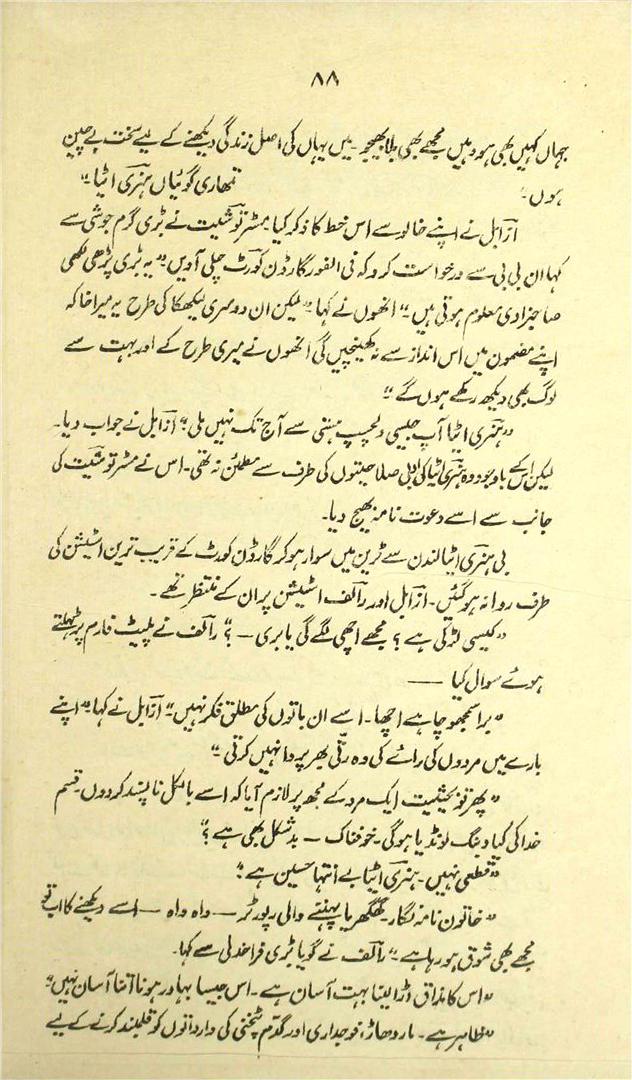 ۸۸
جہاں کہیں بھی ہو وہیں مجھے بھی بلا بھیجو۔ میں یہاں کی اصل زندگی دیکھنے کے لیے سخت بے چین
ہوں۔ تمھاری گوئیاں ہنری اٹیا"
ازابل نے اپنے خالو سے اس خط کا ذکر کیا۔ مسٹر توشیت نے بڑی گرم جوشی سے
کہا ان بی بی سے درخواست کرو کہ فی الفور گارڈن کورٹ چلی آویں" یہ بڑی پڑھی لکھی
صاحبزادی معلوم ہوتی ہیں۔" انھوں نے کہا" لیکن ان دوسری لیکھکا کی طرح یہ میرا خاکہ
اپنے مضمون میں اس انداز سے نہ کھینچیں گی انھوں نے میری طرح کے اور بہت سے
لوگ بھی دیکھ رکھے ہوں گے"
"ہنری اٹیا آپ جیسی دلچسپ ہستی سے آج تک نہیں ملی" ازابل نے جواب دیا۔
لیکن اس کے باوجود وہ ہنری اٹیا کی ادبی صلاحیتوں کی طرف سے مطمئن نہ تھی۔ اس نے مسٹر توشیت کی
جانب سے اسے دعوت نامہ بھیج دیا۔
بی ہنری اٹیا لندن سے ٹرین میں سوار ہو کر گارڈن کورٹ کے قریب ترین اسٹیشن کی
طرف روانہ ہو گئیں۔ ازابل اور رالف اسٹیشن پر ان کے منتظر تھے۔
"کیسی لڑکی ہے؟ مجھے اچھی لگے گی یا بری —؟" رالف نے پلیٹ فارم پر ٹہلتے
ہوئے سوال کیا —
"برا سمجھو چاہے اچھا۔ اسے ان باتوں کی مطلق فکر نہیں۔" ازابل نے کہا" اپنے
بارے میں مردوں کی رائے کی وہ رتّی بھر پروا نہیں کرتی۔"
"پھر تو بحیثیت ایک مرد کے مجھ پر لازم آیا کہ اسے بالکل ناپسند کردوں۔ قسم
خدا کی کیا دبنگ لونڈیا ہوگی۔ خوفناک — بدشکل بھی ہے؟"
"قطعی نہیں۔ ہنری اٹیا بے انتہا حسین ہے"
"خاتون نامہ نگار۔ گھگھریا پہننے والی رپورٹر — واہ واہ — اسے دیکھنے کا اب تو
مجھے بھی شوق ہو رہا ہے۔" رالف نے گویا بڑی فراخدلی سے کہا۔
"اس کا مذاق اڑا لینا بہت آسان ہے۔ اس جیسا بہادر ہونا اتنا آسان نہیں"
"ظاہر ہے۔ مار دھاڑ، فوجداری اور گدّم پٹخنی کی وارداتوں کو قلمبند کرنے کے لیے